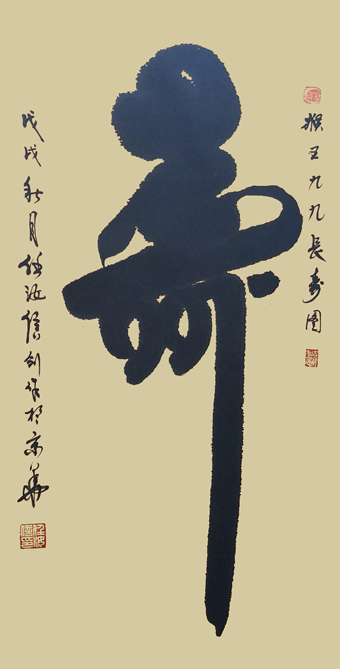 猴王九九長壽圖
壽
戊戌秋月任汝信創作於京華